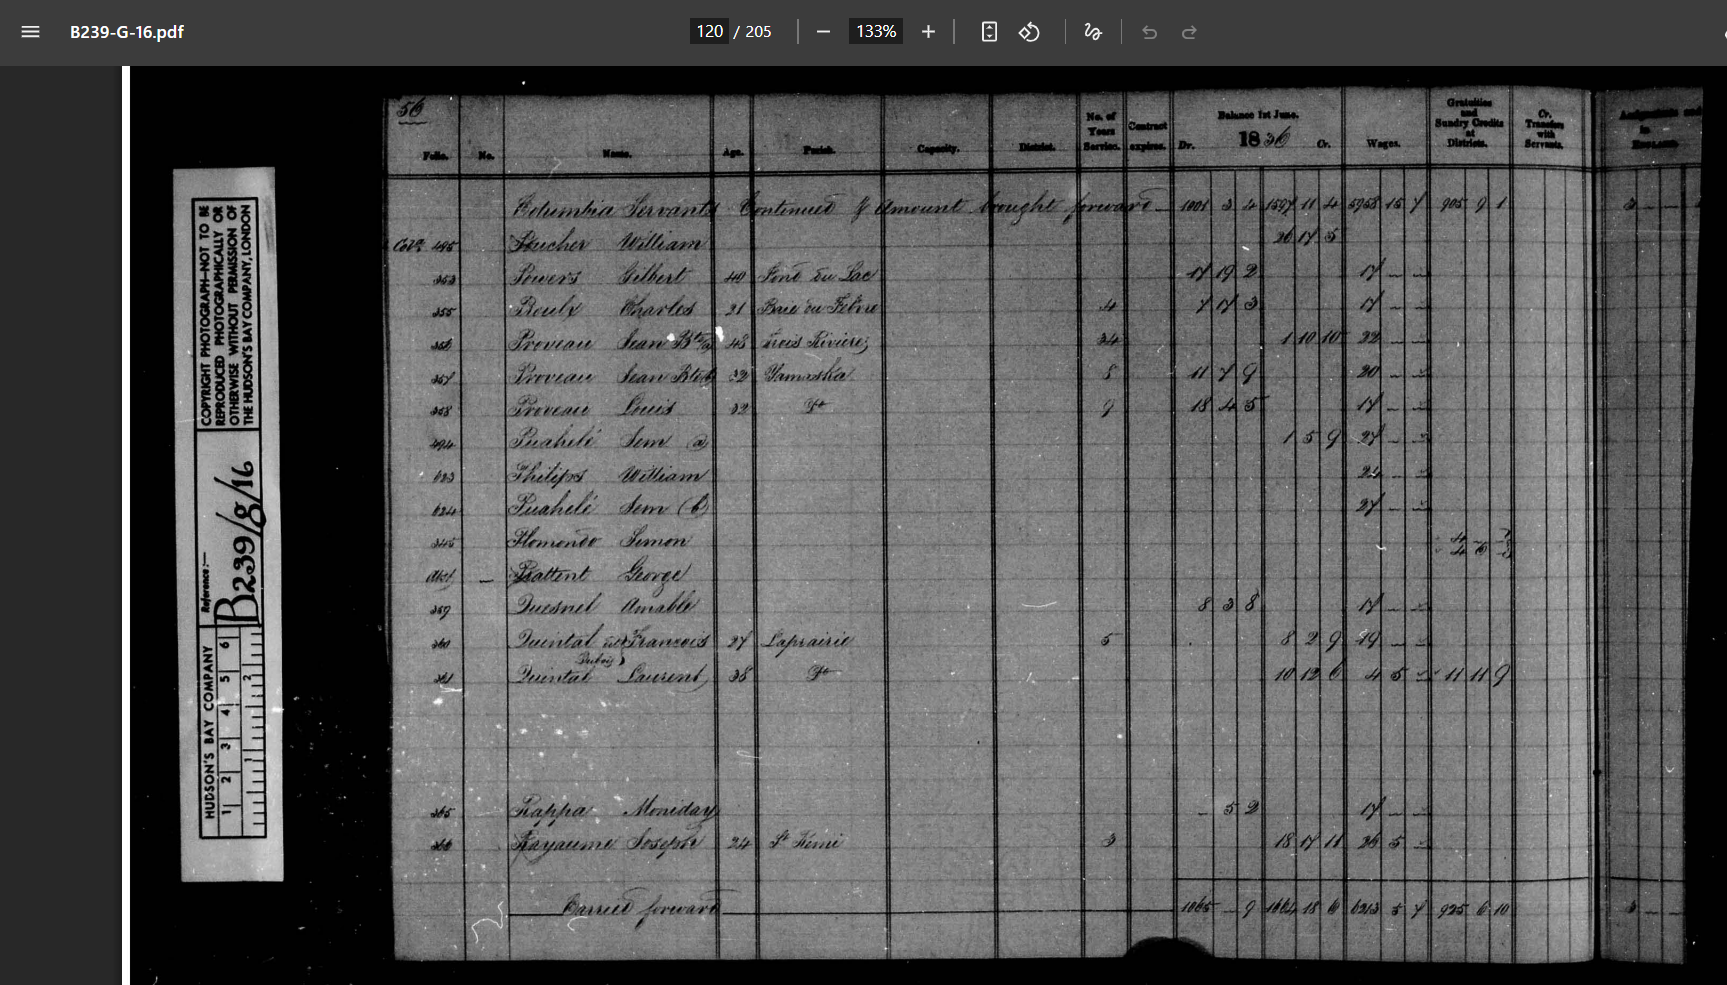 B239-G-16.pdf
120 / 205
133%
COPYRIGHT PHOTOGRAPH—NOT TO BE
REPRODUCED PHOTOGRAPHICALLY OR
OTHERWISE WITHOUT PERMISSION OF
THE HUDSON'S BAY COMPANY, LONDON
Reference:—
B239/g/16
HUDSON'S BAY COMPANY
1 2 3 4 5 6
1 2
56
Folio. No. Name. Age. Parish. Capacity. District. No. of Years Service. Contract expires. Dr. Balance 1st June. 1836 Cr. Wages. Gratuities and Sundry Credits at Districts. Cr. Transfers with Servants.
Columbia Servants Continued & Amount brought forward 1001 3 4 1597 11 4 5958 15 7 905 9 1
495 Poucher William 26 17 5
353 Powers Gilbert 40 Fond du Lac 17 19 2 17 - -
355 Boulx Charles 21 Baie du Febvre 4 7 17 3 17 - -
356 Proveau Jean Bte /a 48 Trois Rivieres 24 1 10 10 22 - -
357 Proveau Jean Bte b 32 Yamaska 8 11 7 9 20 - -
358 Proveau Louis 32 Do 9 18 4 5 17 - -
494 Puahelé Sem (a) 1 5 9 27 - -
623 Philips William 24 - -
624 Puahelé Sem (b) 27 - -
345 Plomondo Simon
- Pattent George
359 Quesnel Amable 8 3 8 17 - -
360 Quintal Francois 27 Laprairie 5 8 2 9 19 - -
Dubois
361 Quintal Laurent 38 Do 10 12 6 4 5 - 11 11 9
365 Rappa Moniday - 5 2 17 - -
366 Rayaume Joseph 24 St Remi 3 18 17 11 26 5 -
Carried forward 1065 - 9 1664 18 6 6213 5 7 925 6 10